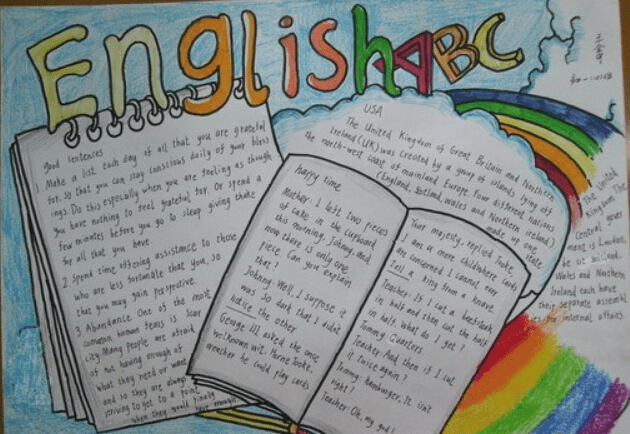 English ABC
good sentences
1. Make a list each day of all that you are grateful
for. so that you can stay conscious daily of your bless
ings. Do this especially when you are feeling as though
you have nothing to feel grateful for. Or spend a
few minutes before you go to sleep giving thake
for all that you have.
2. Spend time offering assistance to those
who are less fortunate than you, so
that you may gain perspective.
3. Abundance One of the most
common human fears is scar
city. Many people are afraid
of not having enough of
what they need or want
and so they are always
striving to get to a point
when they would finally
have enough
USA
The United Kingdom of Great Britain and Northern
Ireland (UK) was created by a group of islands lying off
the north-west coast of mainland Europe. Four different nations
(England, Scotland, wales and Northern ireland)
made up one
state
happy time
Mother: I left two pieces
of cake in the cupboard
this morning, Johnny, and
now there is only one
piece. Can you explain
that?
Johnny: Well, I suppose it
was so dark that I didn't
notice the other
George III, asked the once
well known wit. Horne Tooke,
weather he could play cards
Your majesty, replied Tooke,
I am a mere child where cards
are concerned I cannot even
tell a king from a knave
Teacher: If I cut a beefsteak
in half and then cut the half
in half. What do I get?
Tommy: Quarters.
Teacher: And then if I cut
it twice again?
Tommy: Hamburger. It isn't
right!
Teacher: Oh, my god!
The United
Kingdom The
Central gover
ment is London,
Wales and Northern
Ireland each have
their separate assembl
ies for internal affairs.